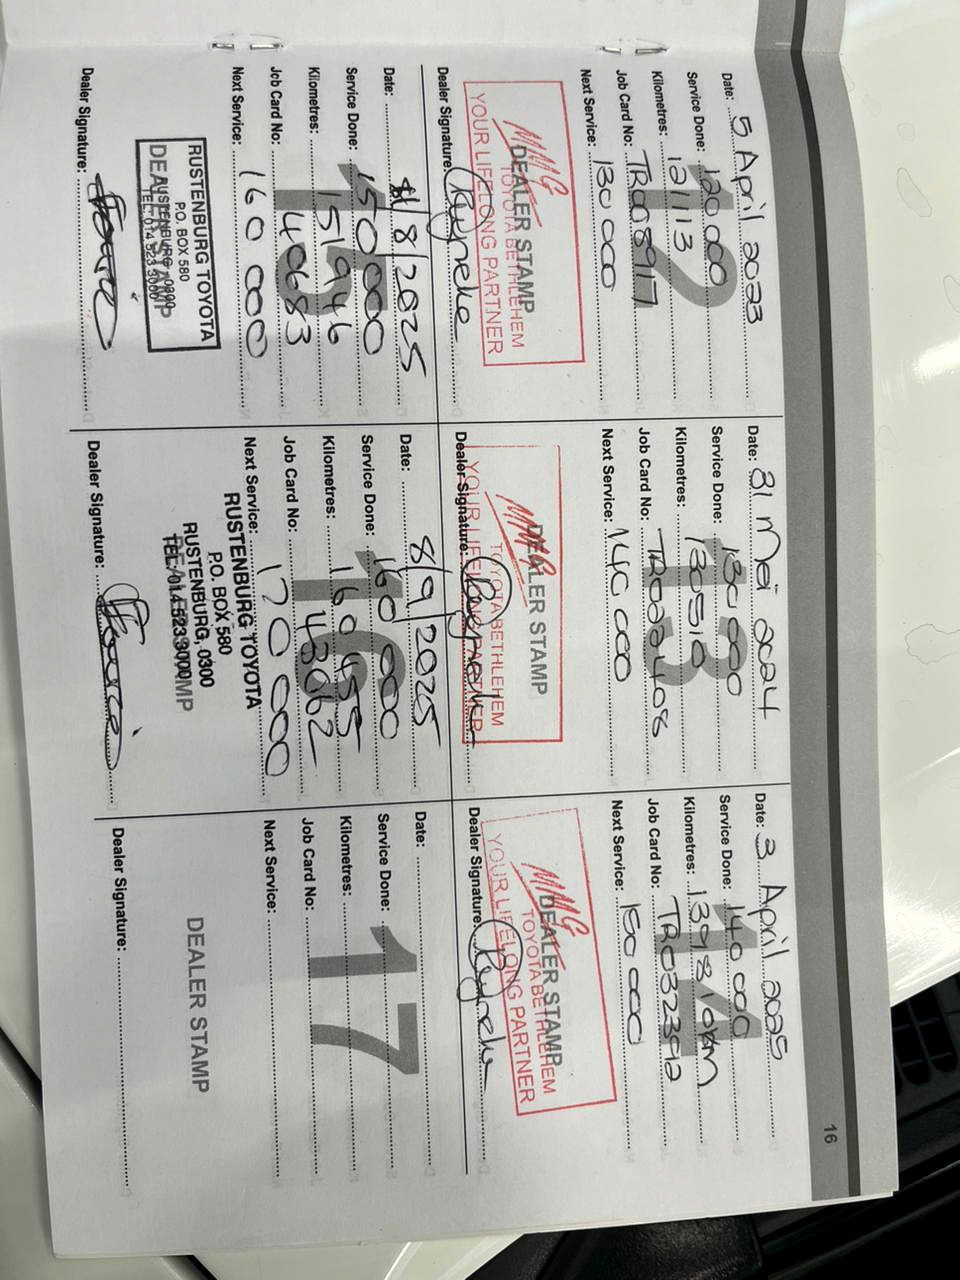 16
Date: 5 April 2023
Service Done: 120 000
Kilometres: 121113
Job Card No: TR008917
Next Service: 130 000
12
MMG
DEALER STAMP
TOYOTA BETHLEHEM
YOUR LIFELONG PARTNER
Dealer Signature:
Date: 31 Mei 2024
Service Done: 130 000
Kilometres: 130510
Job Card No: TR0022408
Next Service: 140 000
13
MMG
DEALER STAMP
TOYOTA BETHLEHEM
YOUR LIFELONG PARTNER
Dealer Signature:
Date: 3 April 2025
Service Done: 140 000
Kilometres: 139810KM
Job Card No: TR032392
Next Service: 150 000
14
MMG
DEALER STAMP
TOYOTA BETHLEHEM
YOUR LIFELONG PARTNER
Dealer Signature:
Date: /8/2025
Service Done: 150 000
Kilometres: 151946
Job Card No: 40683
Next Service: 160 000
15
RUSTENBURG TOYOTA
P.O. BOX 580
RUSTENBURG, 0300
TEL: 014 523 3000
DEALER STAMP
Dealer Signature:
Date: 8/9/2025
Service Done: 160 000
Kilometres: 160455
Job Card No: 43062
Next Service: 170 000
16
RUSTENBURG TOYOTA
P.O. BOX 580
RUSTENBURG, 0300
TEL: 014 523 3000
Dealer Signature:
Date:
Service Done:
Kilometres:
Job Card No:
Next Service:
17
DEALER STAMP
Dealer Signature: